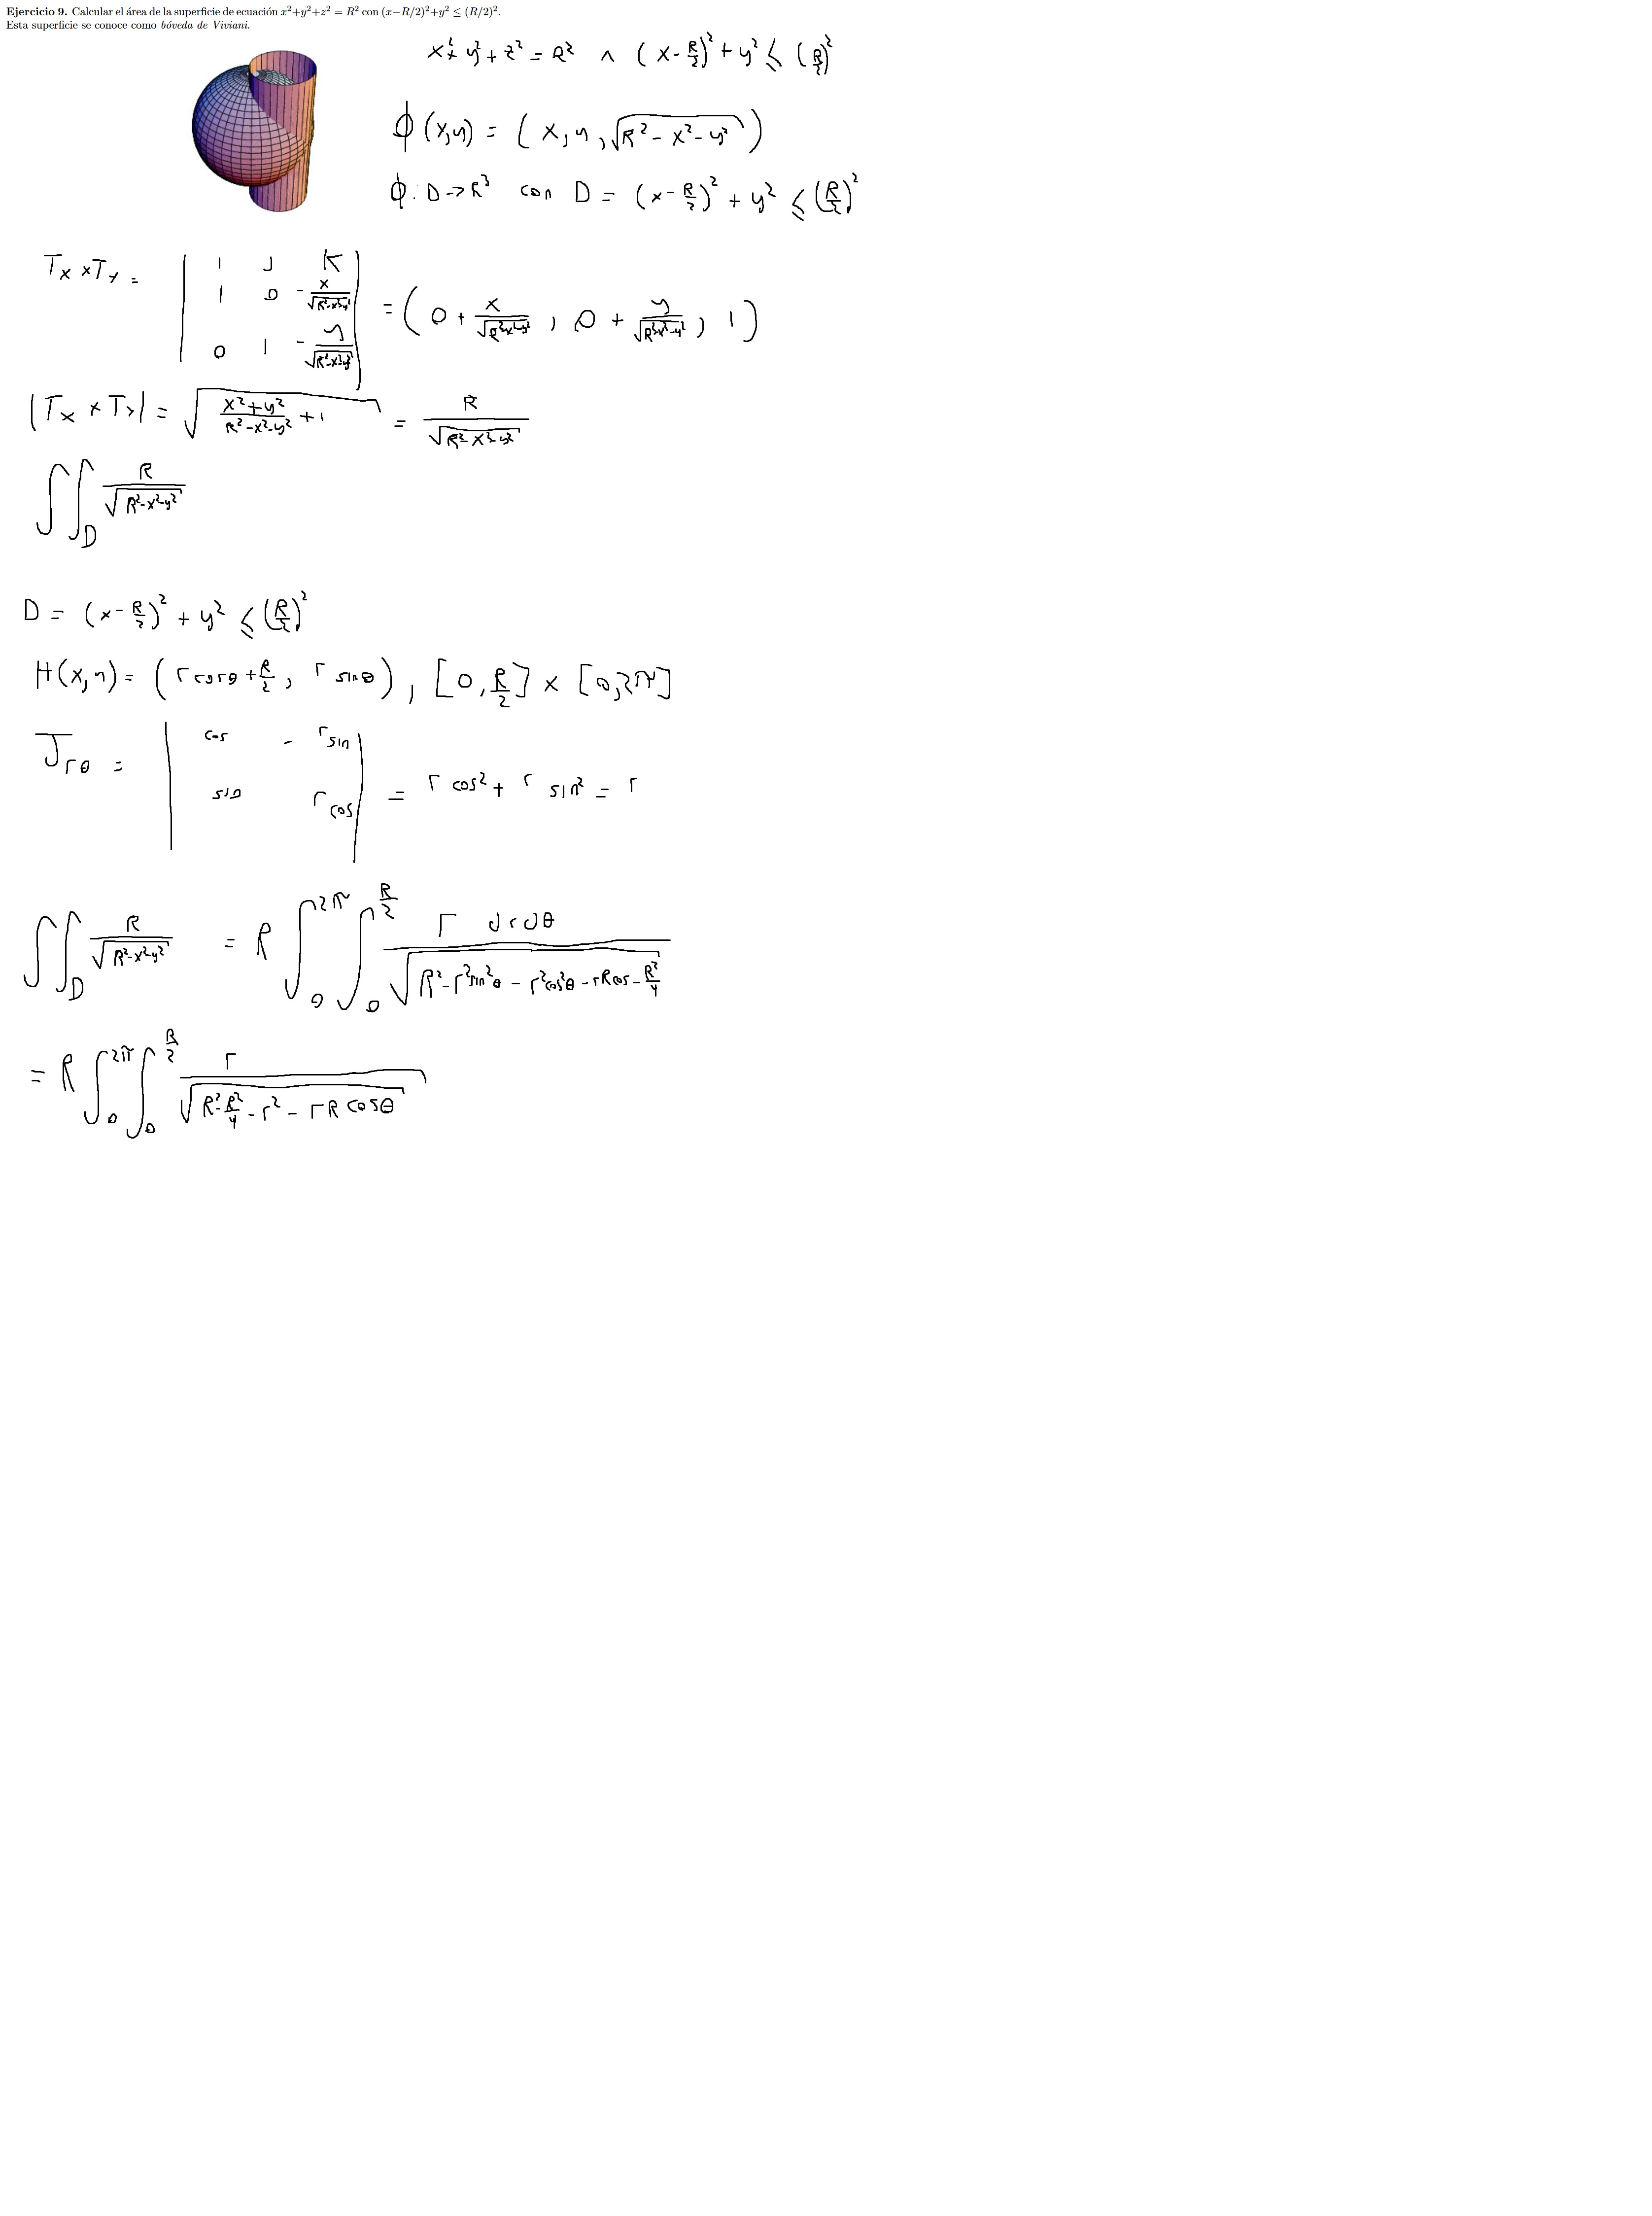 Ejercicio 9. Calcular el área de la superficie de ecuación x²+y²+z² = R² con (x−R/2)²+y² ≤ (R/2)².
Esta superficie se conoce como bóveda de Viviani.
x²+y²+z² = R² ∧ (x - R/2)² + y² ≤ (R/2)²
ϕ(x,y) = (x, y, √(R² - x² - y²))
ϕ: D -> R³ con D = (x - R/2)² + y² ≤ (R/2)²
Tx × Ty =
| i j k |
| 1 0 - x/√(R²-x²-y²) |
| 0 1 - y/√(R²-x²-y²) |
= (0 + x/√(R²-x²-y²), 0 + y/√(R²-x²-y²), 1)
|Tx × Ty| = √((x²+y²)/(R²-x²-y²) + 1) = R/√(R²-x²-y²)
∬_D R/√(R²-x²-y²)
D = (x - R/2)² + y² ≤ (R/2)²
H(x,y) = (r cos θ + R/2, r sin θ), [0, R/2] × [0, 2π]
J_rθ =
| cos - r sin |
| sin r cos |
= r cos² + r sin² = r
∬_D R/√(R²-x²-y²) = R ∫_0^2π ∫_0^(R/2) r dr dθ/√(R² - r² sin² θ - r² cos² θ - rR cos - R²/4)
= R ∫_0^2π ∫_0^(R/2) r/√(R² - R²/4 - r² - rR cos θ)